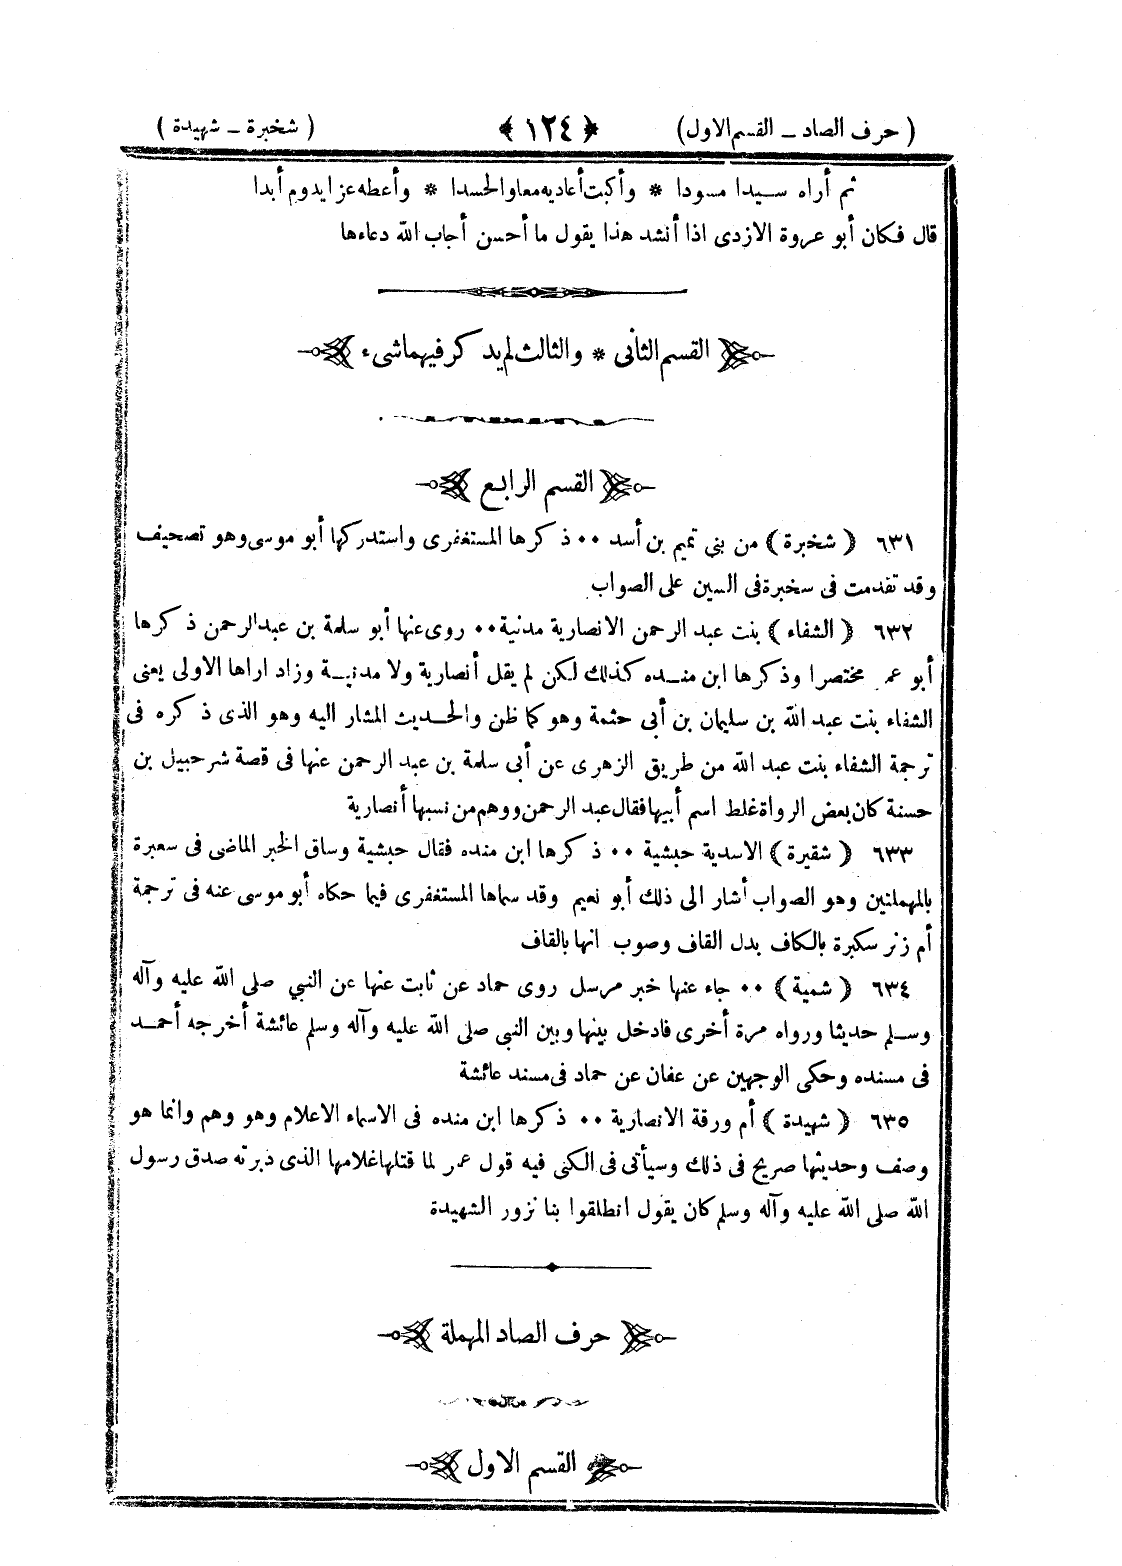 ( حرف الصاد ــ القسم الاول) ﴿ ١٢٤ ﴾ ( شخبرة ــ شهيدة )
ثم أراه سيدا مسودا * وأكبت أعاديه معاوالحسدا * وأعطه عزا يدوم أبدا
قال فكان أبو عروة الازدى اذا أنشد هذا يقول ما أحسن أجاب الله دعاءها
القسم الثانى * والثالث لم يذكر فيهما شىء
القسم الرابع
٦٣١ ( شخبرة ) من بني تميم بن أسد ٠٠ ذكرها المستغفرى واستدركها أبو موسى وهو تصحيف
وقد تقدمت فى سخبرة فى السين على الصواب
٦٣٢ ( الشفاء ) بنت عبد الرحمن الانصارية مدنية ٠٠ روى عنها أبو سلمة بن عبد الرحمن ذكرها
أبو عمر مختصرا وذكرها ابن منده كذلك لكن لم يقل أنصارية ولا مدنية وزاد اراها الاولى يعنى
الشفاء بنت عبد الله بن سليمان بن أبى حثمة وهو كما ظن والحديث المشار اليه وهو الذى ذكره فى
ترجمة الشفاء بنت عبد الله من طريق الزهرى عن أبى سلمة بن عبد الرحمن عنها فى قصة شرحبيل بن
حسنة كان بعض الرواة غلط اسم أبيها فقال عبد الرحمن ووهم من نسبها أنصارية
٦٣٣ ( شقيرة ) الاسدية حبشية ٠٠ ذكرها ابن منده فقال حبشية وساق الخبر الماضى فى سعبرة
بالمهملتين وهو الصواب أشار الى ذلك أبو نعيم وقد سماها المستغفرى فيما حكاه أبو موسى عنه فى ترجمة
أم زفر سكيرة بالكاف بدل القاف وصوب انها بالقاف
٦٣٤ ( شمية ) ٠٠ جاء عنها خبر مرسل روى حماد عن ثابت عنها عن النبي صلى الله عليه وآله
وسلم حديثا ورواه مرة أخرى فادخل بينها وبين النبى صلى الله عليه وآله وسلم عائشة أخرجه أحمد
فى مسنده وحكى الوجهين عن عفان عن حماد فى مسند عائشة
٦٣٥ ( شهيدة ) أم ورقة الانصارية ٠٠ ذكرها ابن منده فى الاسماء الاعلام وهو وهم وانما هو
وصف وحديثها صريح فى ذلك وسيأتى فى الكنى فيه قول عمر لما قتلها غلامها الذى دبرته صدق رسول
الله صلى الله عليه وآله وسلم كان يقول انطلقوا بنا نزور الشهيدة
حرف الصاد المهملة
القسم الاول